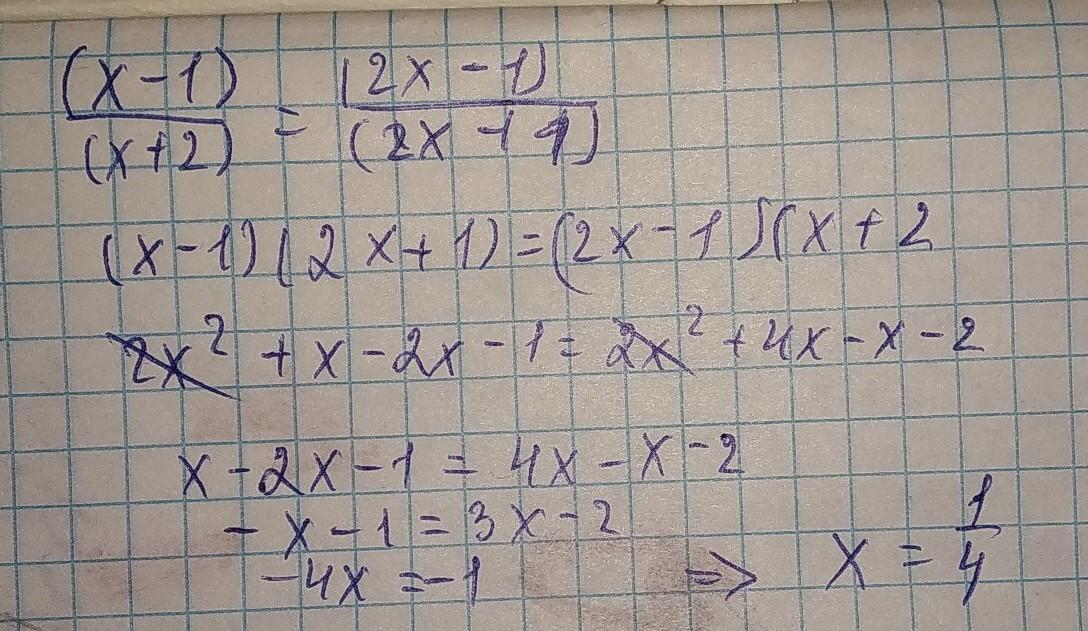 (x-1)/(x+2) = (2x-1)/(2x+1)
(x-1)(2x+1)=(2x-1)(x+2
2x² + x - 2x - 1 = 2x² + 4x - x - 2
x - 2x - 1 = 4x - x - 2
- x - 1 = 3x - 2
-4x = -1 => x = 1/4